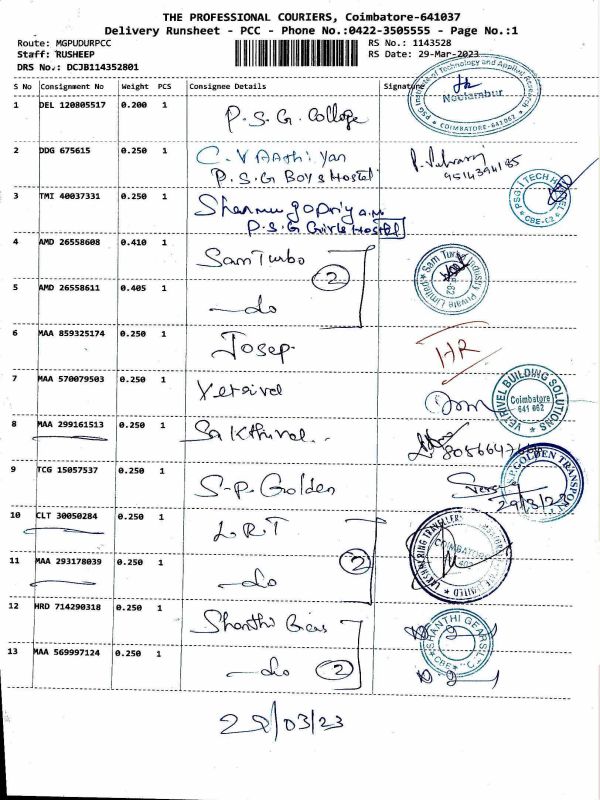 THE PROFESSIONAL COURIERS, Coimbatore-641037
Delivery Runsheet - PCC - Phone No.:0422-3505555 - Page No.:1
Route: MGPUDURPCC
Staff: RUSHEEP
DRS No.: DCJB114352801
RS No.: 1143528
RS Date: 29-Mar-2023
S No Consignment No Weight PCS Consignee Details Signature
1 DEL 120805517 0.200 1 P.S.G. College
Neelambur
COIMBATORE-641062
2 DDG 675615 0.250 1 C.V AAthi yan
P.S.G Boys Hostel
3 TMI 40037331 0.250 1
P.S.G Girls Hostel
4 AMD 26558608 0.410 1 Sam Turbo
2
Sam Turbo Industry Private Limited
5 AMD 26558611 0.405 1 -do
6 MAA 859325174 0.250 1 Josep HR
7 MAA 570079503 0.250 1 Vetrivel
VETRIVEL BUILDING SOLUTIONS
Coimbatore
641 062
8 MAA 299161513 0.250 1 Sakthivel
9 TCG 15057537 0.250 1 S-P. Golden
S.P.GOLDEN TRANSPORT
29/3/23
10 CLT 30050284 0.250 1 L.R.T
2
11 MAA 293178039 0.250 1 -do
12 HRD 714290318 0.250 1 Shanthi Gears
SHANTHI GEARS
13 MAA 569997124 0.250 1 -do 2
29/03/23